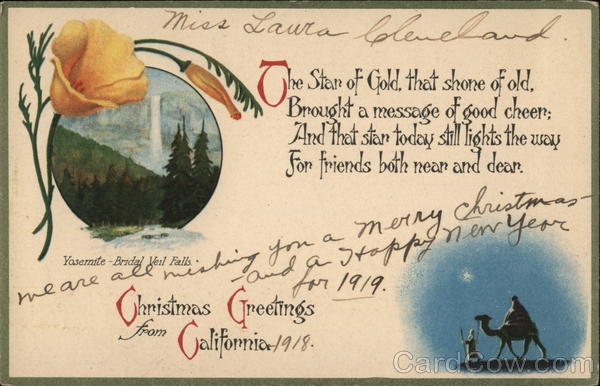 Miss Laura Cleveland.
The Star of Gold, that shone of old,
Brought a message of good cheer;
And that star today still lights the way
For friends both near and dear.
Yosemite - Bridal Veil Falls.
we are all wishing you a Merry Christmas -
- and a Happy New Year
for 1919.
Christmas Greetings
from California 1918.
CardCow.com